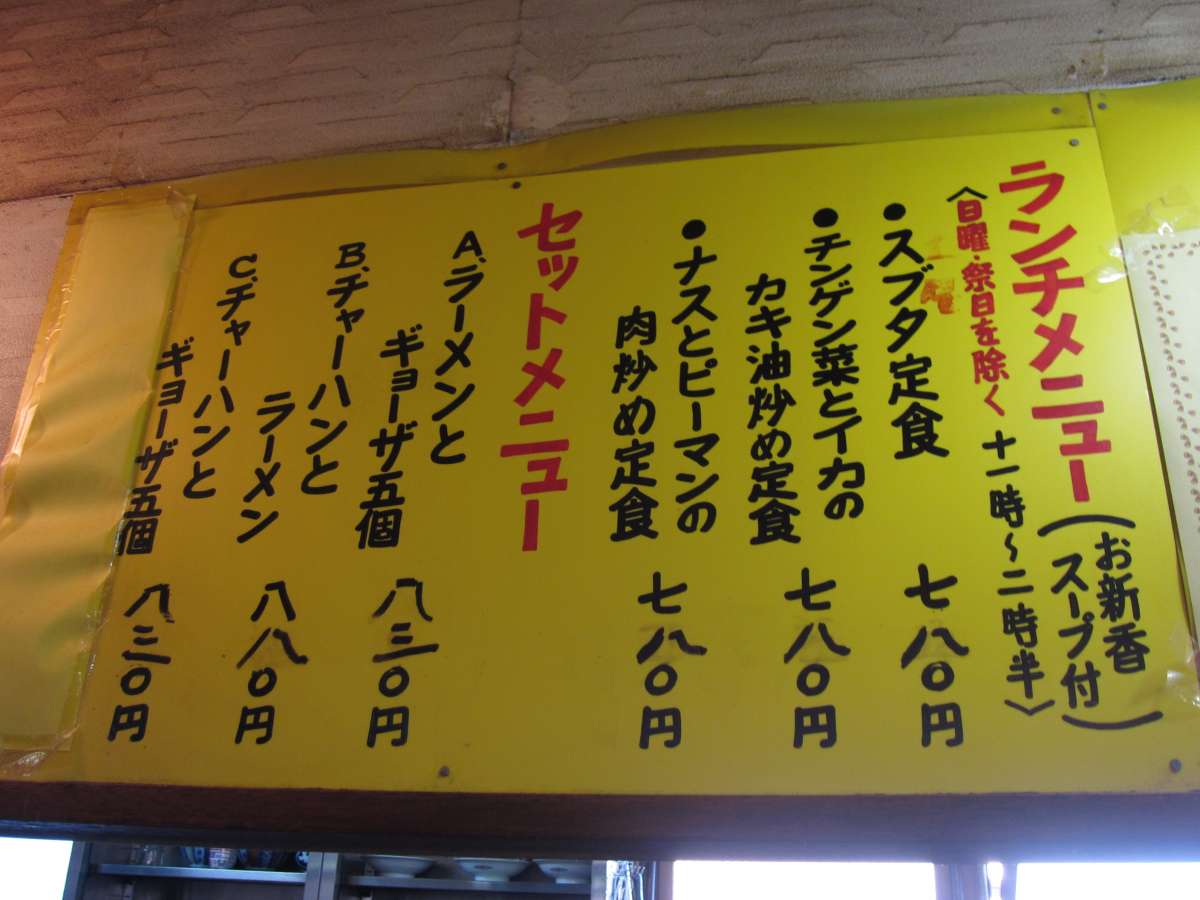 ランチメニュー(お新香スープ付)
〈日曜・祭日を除く 十一時〜二時半〉
●スブタ定食 七八〇円
●チンゲン菜とイカの
カキ油炒め定食 七八〇円
●ナスとピーマンの
肉炒め定食 七八〇円
セットメニュー
A.ラーメンと
ギョーザ五個 八三〇円
B.チャーハンと
ラーメン 八八〇円
C.チャーハンと
ギョーザ五個 八三〇円